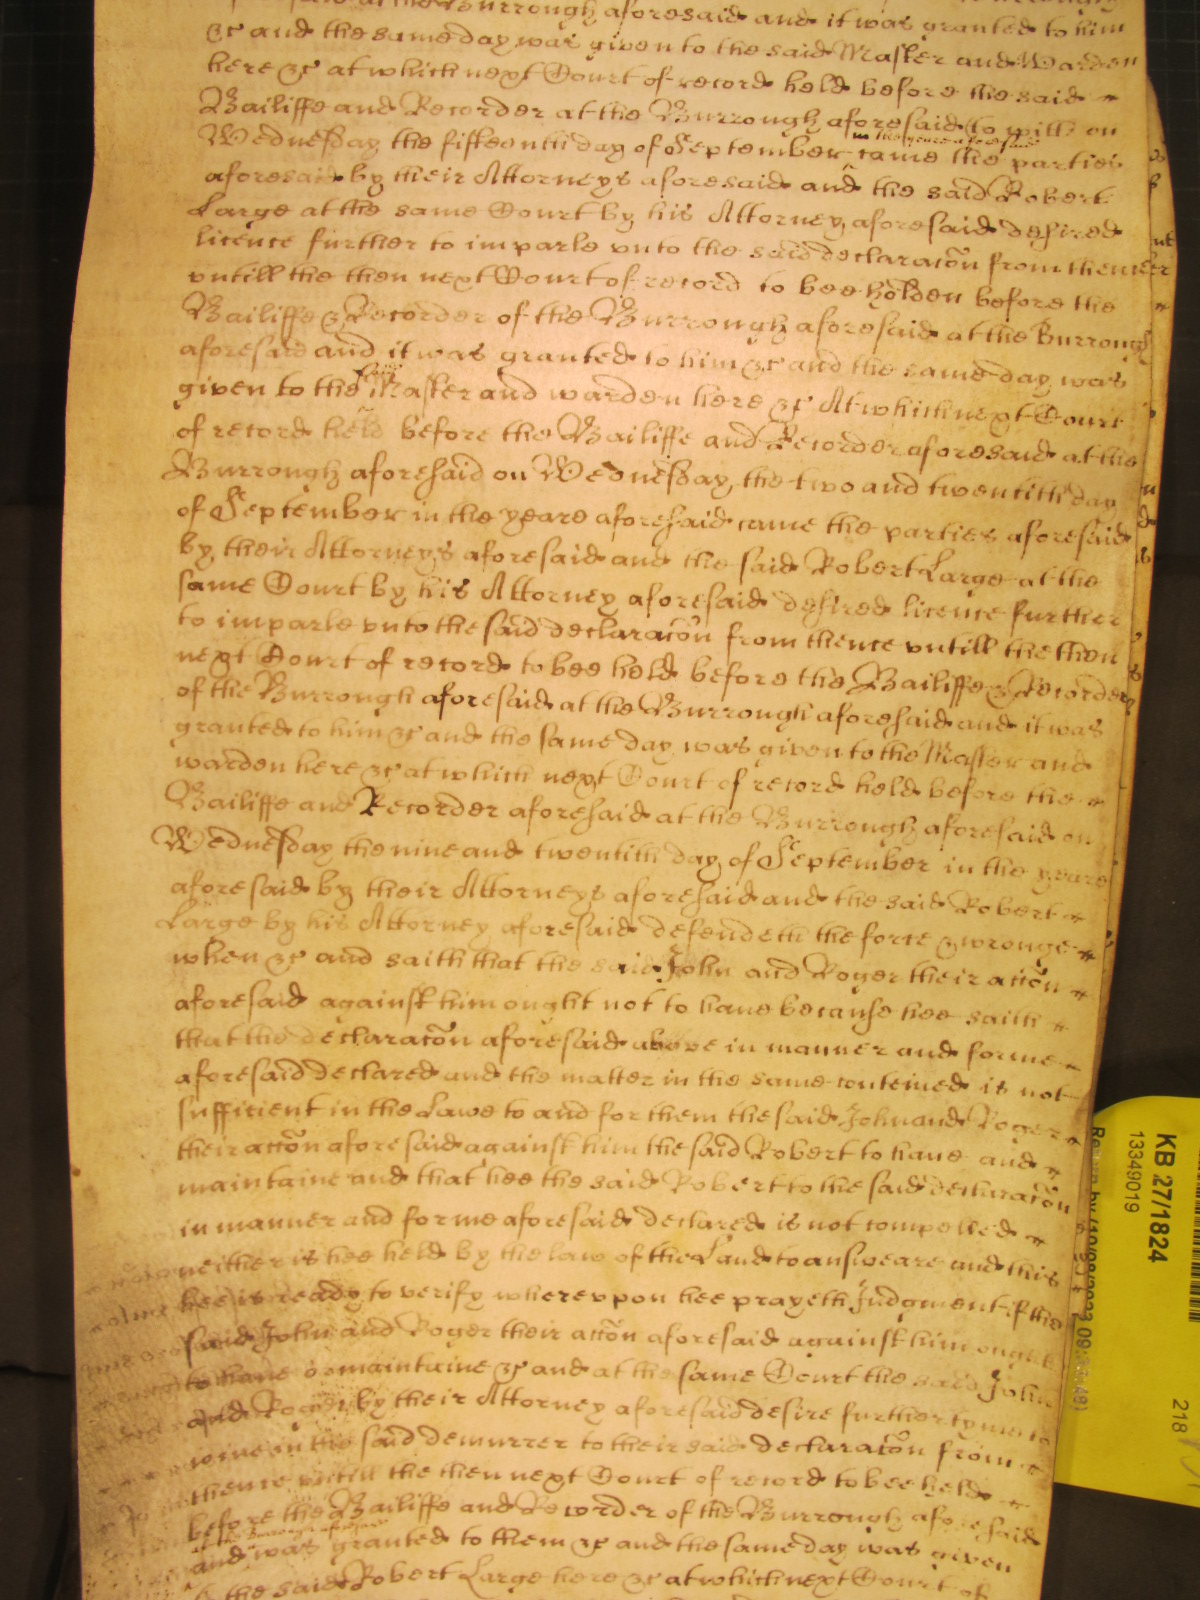 said at the Burrough aforesaid and it was granted to him
&c and the same day was given to the said Master and Warden
here &c at which next Court of record held before the said
Bailiffe and Recorder at the Burrough aforesaid (to witt) on
in the yeare aforesaid
Wednesday the fifteenth day of September came the parties
aforesaid by their Attorneys aforesaid and the said Robert
Large at the same Court by his Attorney aforesaid desired
licence further to imparle vnto the said declaracõn from thence
vntill the then next Court of record to bee holden before the
Bailiffe & Recorder of the Burrough aforesaid at the Burrough
aforesaid and it was granted to him &c and the same day was
said
given to the Master and warden here &c At which next Court
of record held before the Bailiffe and Recorder aforesaid at the
Burrough aforesaid on Wednesday the two and twentith day
of September in the yeare aforesaid came the parties aforesaid
by their Attorneys aforesaid and the said Robert Large at the
same Court by his Attorney aforesaid desired licence further
to imparle vnto the said declaracõn from thence vntill the then
next Court of record to bee held before the Bailiffe & Recorder
of the Burrough aforesaid at the Burrough aforesaid and it was
granted to him &c and the same day was given to the Master and
warden here &c at which next Court of record held before the
Bailiffe and Recorder aforesaid at the Burrough aforesaid on
Wednesday the nine and twentith day of September in the yeare
aforesaid by their Attorneys aforesaid and the said Robert
Large by his Attorney aforesaid defendeth the force & wronge
when &c and saith that the said John and Roger their accõn
aforesaid against him ought not to haue because hee saith
that the declaracõn aforesaid above in manner and forme
aforesaid declared and the matter in the same conteined is not
sufficient in the Lawe to and for them the said John and Roger
their accõn aforesaid against him the said Robert to haue and
maintaine and that hee the said Robert to the said declaracõn
in manner and forme aforesaid declared is not compelled
neither is hee held by the law of the Land to answeare and this
hee is ready to verify wherevpon hee prayeth Judgment if the
said John and Roger their accõn aforesaid against him ought
to haue or maintaine &c and at the same Court the said John
and Roger by their Attorney aforesaid desire further tyme to
ioine in the said demurrer to their said declaracõn from
thence vntill the then next Court of record to bee held
before the Bailiffe and Recorder of the Burrough aforesaid
at the Burrough aforesaid
and was granted to them &c and the same day was given
to the said Robert Large here &c at which next Court of
KB 27/1824
13349019
218